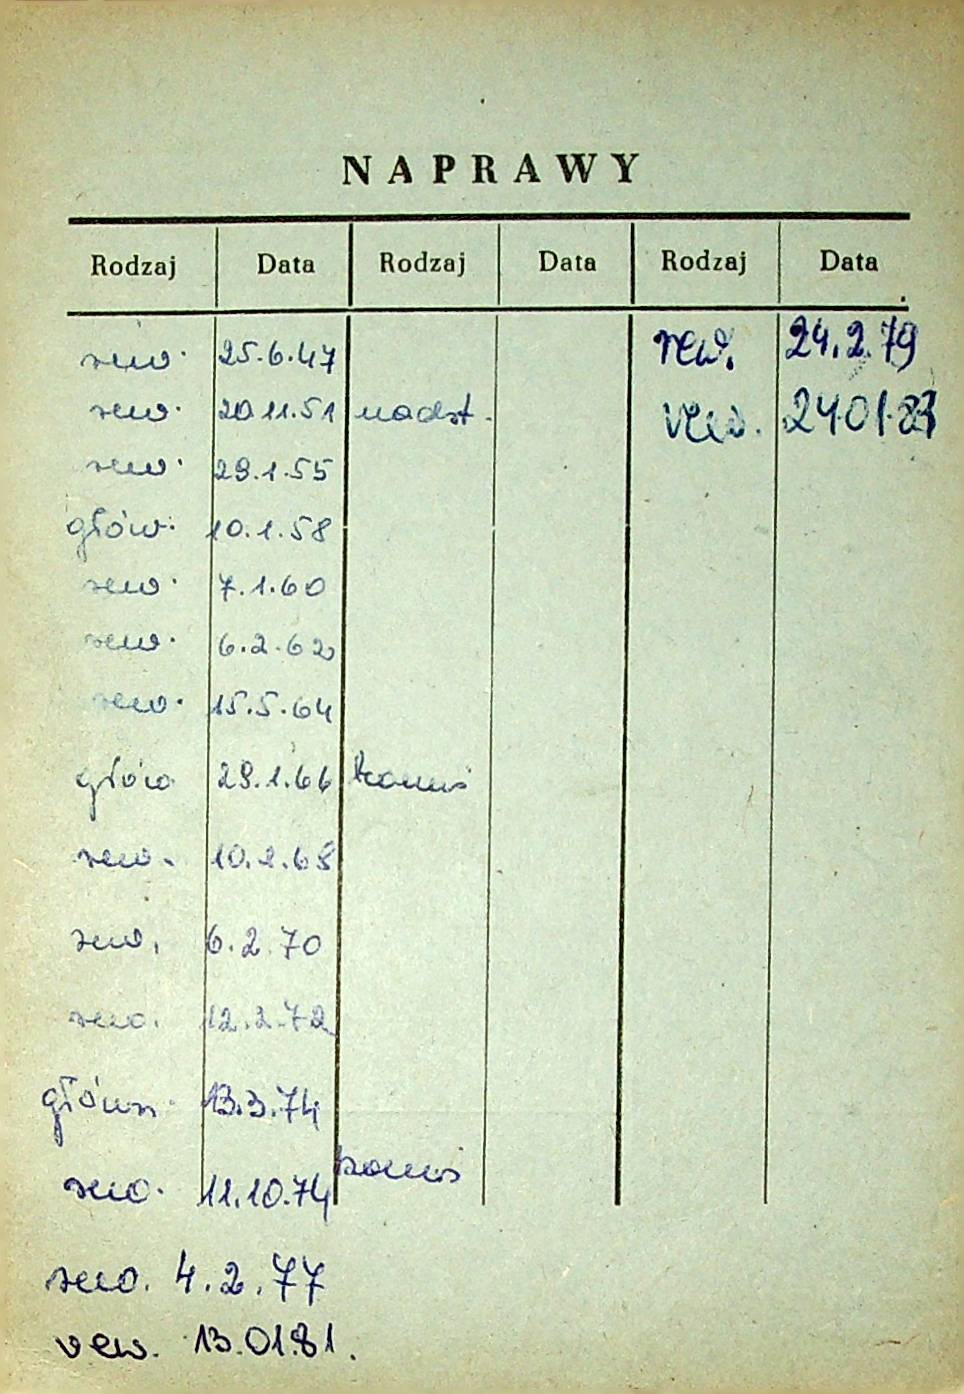 NAPRAWY
Rodzaj Data Rodzaj Data Rodzaj Data
rew. 25.6.47 rew. 24.2.79
rew. 20.11.51 nadst. rew. 24.01.83
rew. 29.1.55
głów. 10.1.58
rew. 7.1.60
rew. 6.2.62
rew. 15.5.64
głów 29.1.66 komis
rew. 10.2.68
rew. 6.2.70
rew. 12.2.72
główn. 13.3.74
rew. 11.10.74 komis
rew. 4.2.77
rew. 13.01.81.